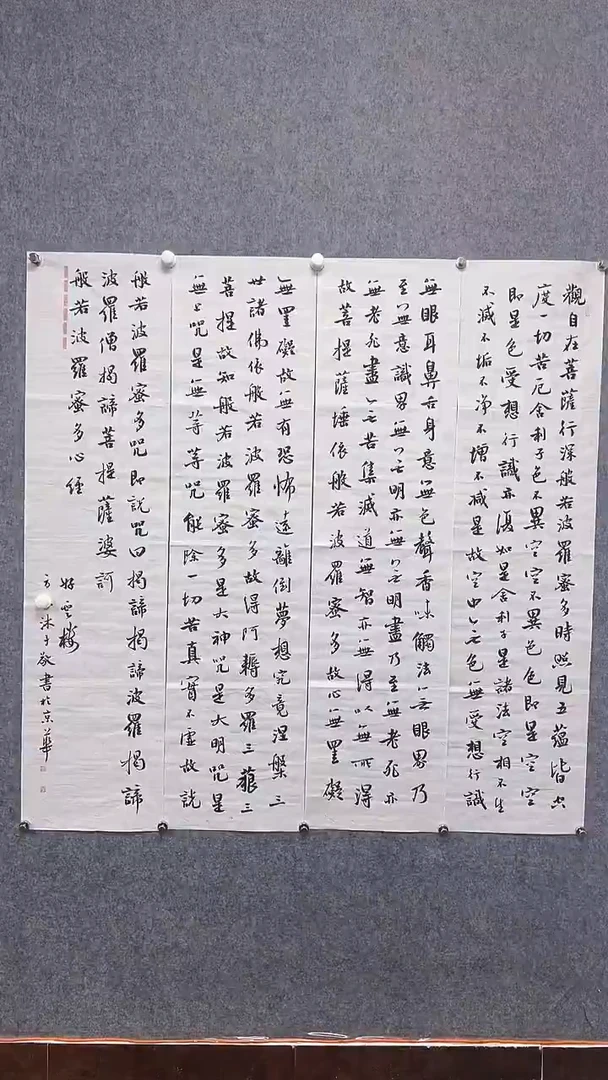 觀自在菩薩行深般若波羅蜜多時照見五蘊皆空
度一切苦厄舍利子色不異空空不異色色即是空空
即是色受想行識亦復如是舍利子是諸法空相不生
不滅不垢不淨不增不減是故空中無色無受想行識
無眼耳鼻舌身意無色聲香味觸法無眼界乃
至無意識界無無明亦無無明盡乃至無老死亦
無老死盡無苦集滅道無智亦無得以無所得
故菩提薩埵依般若波羅蜜多故心無罣礙
無罣礙故無有恐怖遠離倒夢想究竟涅槃三
世諸佛依般若波羅蜜多故得阿耨多羅三藐三
菩提故知般若波羅蜜多是大神咒是大明咒是
無上咒是無等等咒能除一切苦真實不虛故說
般若波羅蜜多咒即說咒曰揭諦揭諦波羅揭諦
波羅僧揭諦菩提薩婆訶
般若波羅蜜多心經
沐手敬書於京華